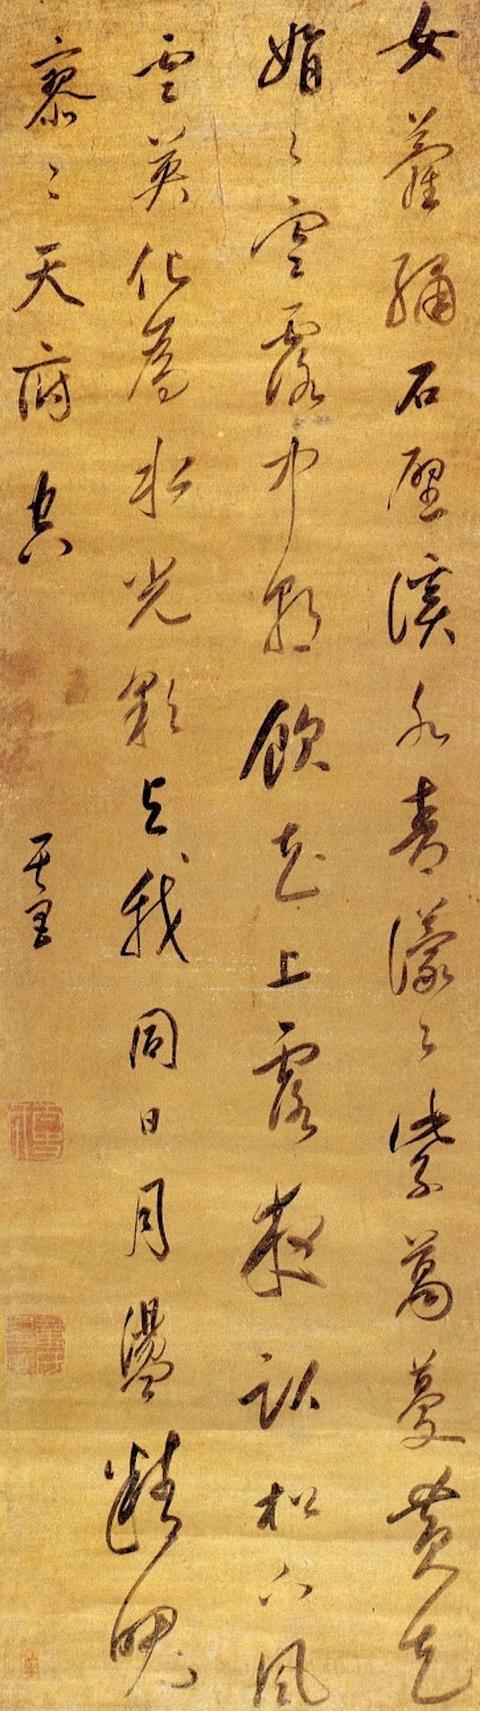 女蘿繡石壁溪水青濛〻紫葛蔓黃花
娟〻寒露中朝飲花上露夜臥松下風
雲英化為水光彩与我同日月盪精魄
寥〻天府空
其昌